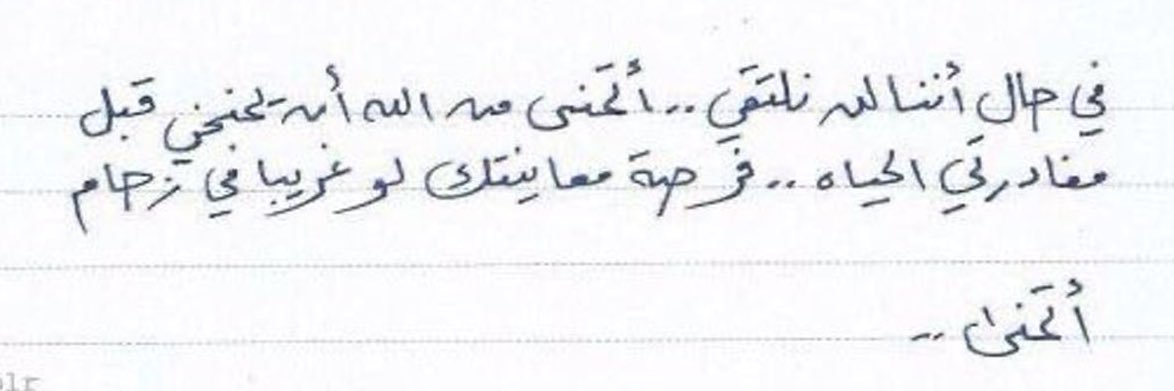 في حال أننا لن نلتقي .. أتمنى من الله أن يمنحني قبل
مغادرتي الحياه .. فرصة معاينتك لو غريبا في زحام
أتمنى ..
blr